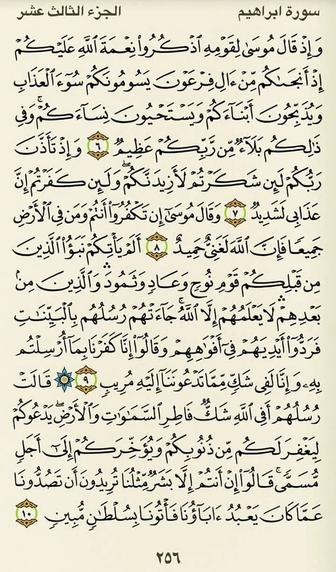 سورة ابراهيم الجزء الثالث عشر
وَإِذْ قَالَ مُوسَىٰ لِقَوْمِهِ ٱذْكُرُوا۟ نِعْمَةَ ٱللَّهِ عَلَيْكُمْ
إِذْ أَنجَىٰكُم مِّنْ ءَالِ فِرْعَوْنَ يَسُومُونَكُمْ سُوٓءَ ٱلْعَذَابِ
وَيُذَبِّحُونَ أَبْنَآءَكُمْ وَيَسْتَحْيُونَ نِسَآءَكُمْ ۚ وَفِى
ذَٰلِكُم بَلَآءٌ مِّن رَّبِّكُمْ عَظِيمٌ ٦ وَإِذْ تَأَذَّنَ
رَبُّكُمْ لَئِن شَكَرْتُمْ لَأَزِيدَنَّكُمْ ۖ وَلَئِن كَفَرْتُمْ إِنَّ
عَذَابِى لَشَدِيدٌ ٧ وَقَالَ مُوسَىٰٓ إِن تَكْفُرُوٓا۟ أَنتُمْ وَمَن فِى ٱلْأَرْضِ
جَمِيعًا فَإِنَّ ٱللَّهَ لَغَنِىٌّ حَمِيدٌ ٨ أَلَمْ يَأْتِكُمْ نَبَؤُا۟ ٱلَّذِينَ
مِن قَبْلِكُمْ قَوْمِ نُوحٍ وَعَادٍ وَثَمُودَ ۛ وَٱلَّذِينَ مِنۢ
بَعْدِهِمْ ۛ لَا يَعْلَمُهُمْ إِلَّا ٱللَّهُ ۚ جَآءَتْهُمْ رُسُلُهُم بِٱلْبَيِّنَٰتِ
فَرَدُّوٓا۟ أَيْدِيَهُمْ فِىٓ أَفْوَٰهِهِمْ وَقَالُوٓا۟ إِنَّا كَفَرْنَا بِمَآ أُرْسِلْتُم
بِهِۦ وَإِنَّا لَفِى شَكٍّ مِّمَّا تَدْعُونَنَآ إِلَيْهِ مُرِيبٍ ٩ ۞ قَالَتْ
رُسُلُهُمْ أَفِى ٱللَّهِ شَكٌّ فَاطِرِ ٱلسَّمَٰوَٰتِ وَٱلْأَرْضِ ۖ يَدْعُوكُمْ
لِيَغْفِرَ لَكُم مِّن ذُنُوبِكُمْ وَيُؤَخِّرَكُمْ إِلَىٰٓ أَجَلٍ
مُّسَمًّى ۚ قَالُوٓا۟ إِنْ أَنتُمْ إِلَّا بَشَرٌ مِّثْلُنَا تُرِيدُونَ أَن تَصُدُّونَا
عَمَّا كَانَ يَعْبُدُ ءَابَآؤُنَا فَأْتُونَا بِسُلْطَٰنٍ مُّبِينٍ ١٠
٢٥٦